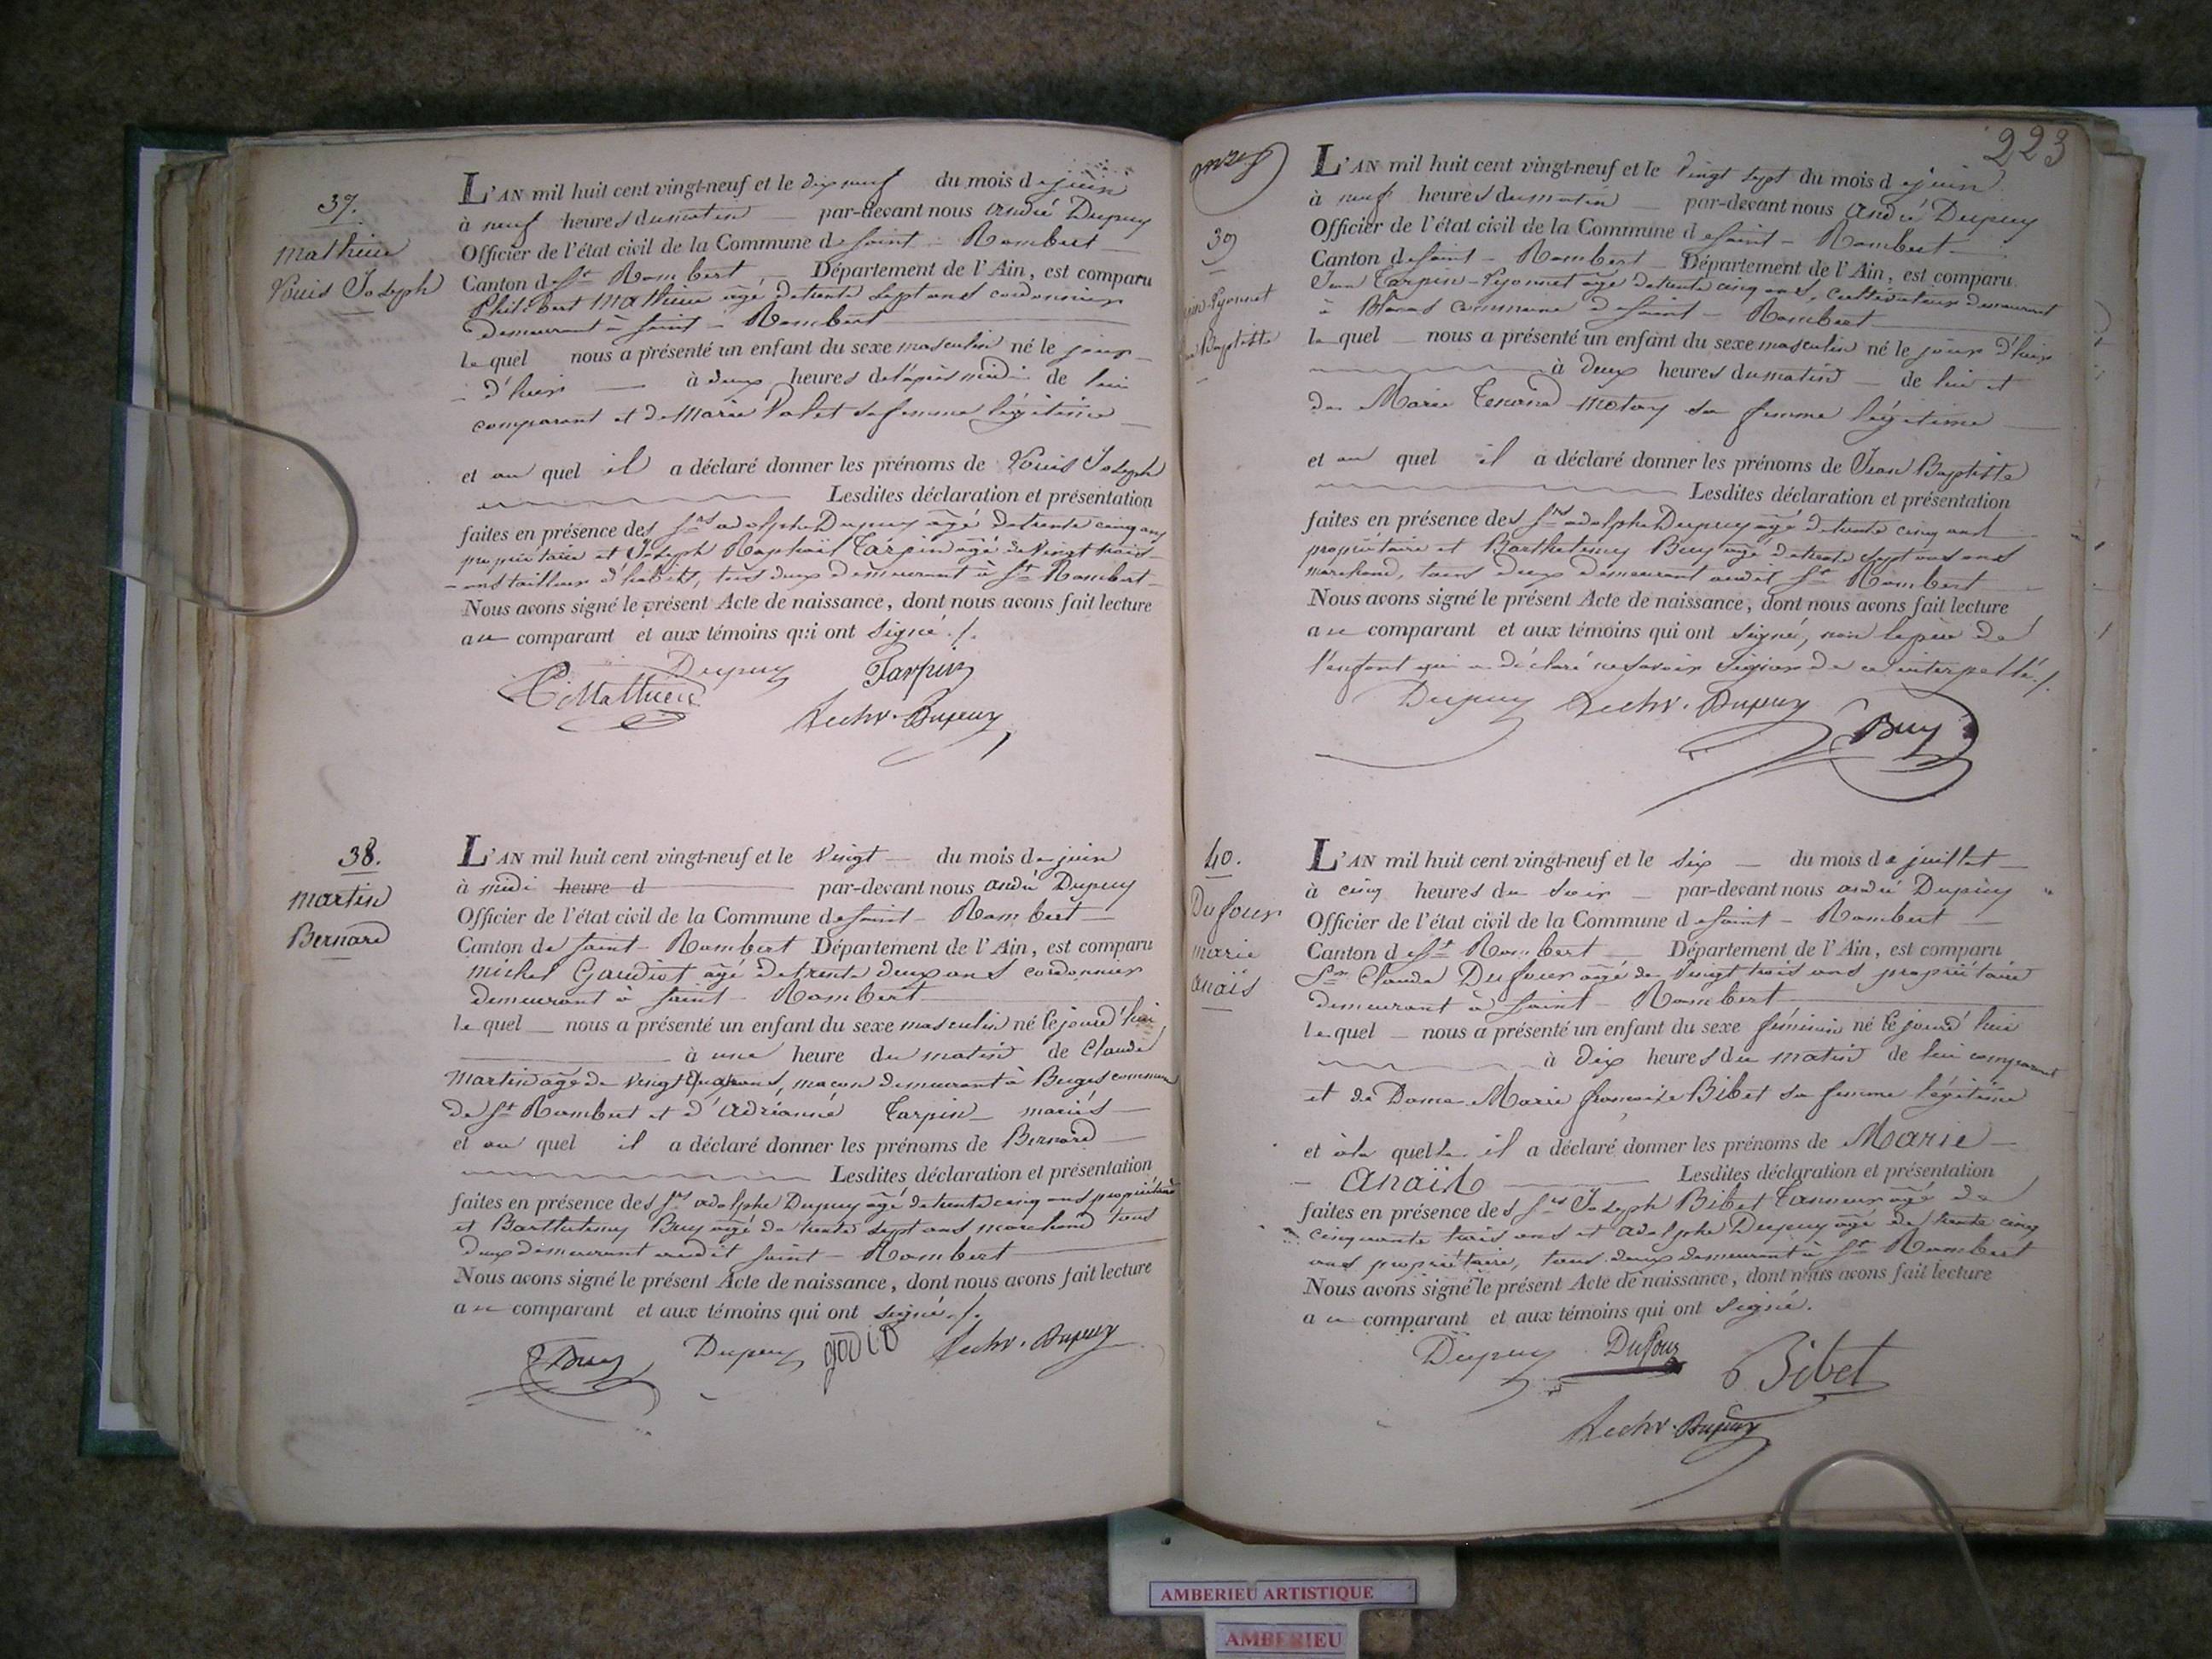 37.
Mathieu
Louis Joseph
L'AN mil huit cent vingt-neuf et le dix neuf du mois de juin
à neuf heures du matin par-devant nous André Dupuy
Officier de l'état civil de la Commune de Saint-Rambert
Canton de St Rambert Département de l'Ain, est comparu
Philibert Mathieu agé de trente sept ans cordonnier
demeurant à Saint-Rambert
lequel nous a présenté un enfant du sexe masculin né le jour
d'hier à deux heures de l'après midi de lui
comparant et de Marie Valet sa femme légitime
et au quel il a déclaré donner les prénoms de Louis Joseph
Lesdites déclaration et présentation
faites en présence des Srs adolphe Dupuy âgé de trente cinq ans
propriétaire et Joseph Raphaël Tarpin agé de vingt trois
ans tailleur d'habits, tous deux demeurant à St Rambert
Nous avons signé le présent Acte de naissance, dont nous avons fait lecture
au comparant et aux témoins qui ont signé ./.
Mathieu Dupuy Tarpin
Dupuy
38.
Martin
Bernard
L'AN mil huit cent vingt-neuf et le vingt du mois de juin
à midi heure d par-devant nous André Dupuy
Officier de l'état civil de la Commune de Saint-Rambert
Canton de Saint-Rambert Département de l'Ain, est comparu
Michel Gaudiot agé de trente deux ans cordonnier
demeurant à Saint-Rambert
lequel nous a présenté un enfant du sexe masculin né le jourd'hui
à une heure du matin de Claude
Martin âgé de vingt ans, maçon demeurant à Buges commune
de St Rambert et d'Adrianne Tarpin mariés
et au quel il a déclaré donner les prénoms de Bernard
Lesdites déclaration et présentation
faites en présence des Srs adolphe Dupuy âgé de trente cinq ans propriétaire
et Barthelemy Buy agé de trente sept ans marchand tous
deux demeurant audit Saint-Rambert
Nous avons signé le présent Acte de naissance, dont nous avons fait lecture
au comparant et aux témoins qui ont signé ./.
Buy Dupuy godio Dupuy
223
onze
39
Pyonnet
Baptiste
L'AN mil huit cent vingt-neuf et le vingt sept du mois de juin
à neuf heures du matin par-devant nous André Dupuy
Officier de l'état civil de la Commune de Saint-Rambert
Canton de Saint-Rambert Département de l'Ain, est comparu
Jean Tarpin-Pyonnet âgé de trente cinq ans, cultivateur demeurant
à Blanas commune de Saint-Rambert
lequel nous a présenté un enfant du sexe masculin né le jour d'hier
à deux heures du matin de lui et
de Marie Tenand Motay sa femme légitime
et au quel il a déclaré donner les prénoms de Jean Baptiste
Lesdites déclaration et présentation
faites en présence des Srs adolphe Dupuy agé de trente cinq ans
propriétaire et Barthelemy Buy agé de trente sept ans ans
marchand, tous deux demeurant audit St Rambert
Nous avons signé le présent Acte de naissance, dont nous avons fait lecture
au comparant et aux témoins qui ont signé, non le père de
l'enfant qui a déclaré ne savoir signer de ce interpellé ./.
Dupuy Dupuy
Buy
40.
Dufour
marie
anaïs
L'AN mil huit cent vingt-neuf et le six du mois de juillet
à cinq heures du soir par-devant nous André Dupuy
Officier de l'état civil de la Commune de Saint-Rambert
Canton de St Rambert Département de l'Ain, est comparu
Sr Claude Dufour agé de vingt trois ans propriétaire
demeurant à Saint-Rambert
lequel nous a présenté un enfant du sexe féminin né le jourd'hui
à dix heures du matin de lui comparant
et de Dame Marie françoise Bibet sa femme légitime
et à la quelle il a déclaré donner les prénoms de Marie
Anaïs Lesdites déclaration et présentation
faites en présence des Srs Joseph Bibet Tanneur agé de
cinquante trois ans et adolphe Dupuy agé de trente cinq
ans propriétaire, tous deux demeurant à St Rambert
Nous avons signé le présent Acte de naissance, dont nous avons fait lecture
au comparant et aux témoins qui ont signé.
Dupuy Dufour Bibet
Dupuy
AMBERIEU ARTISTIQUE
AMBERIEU